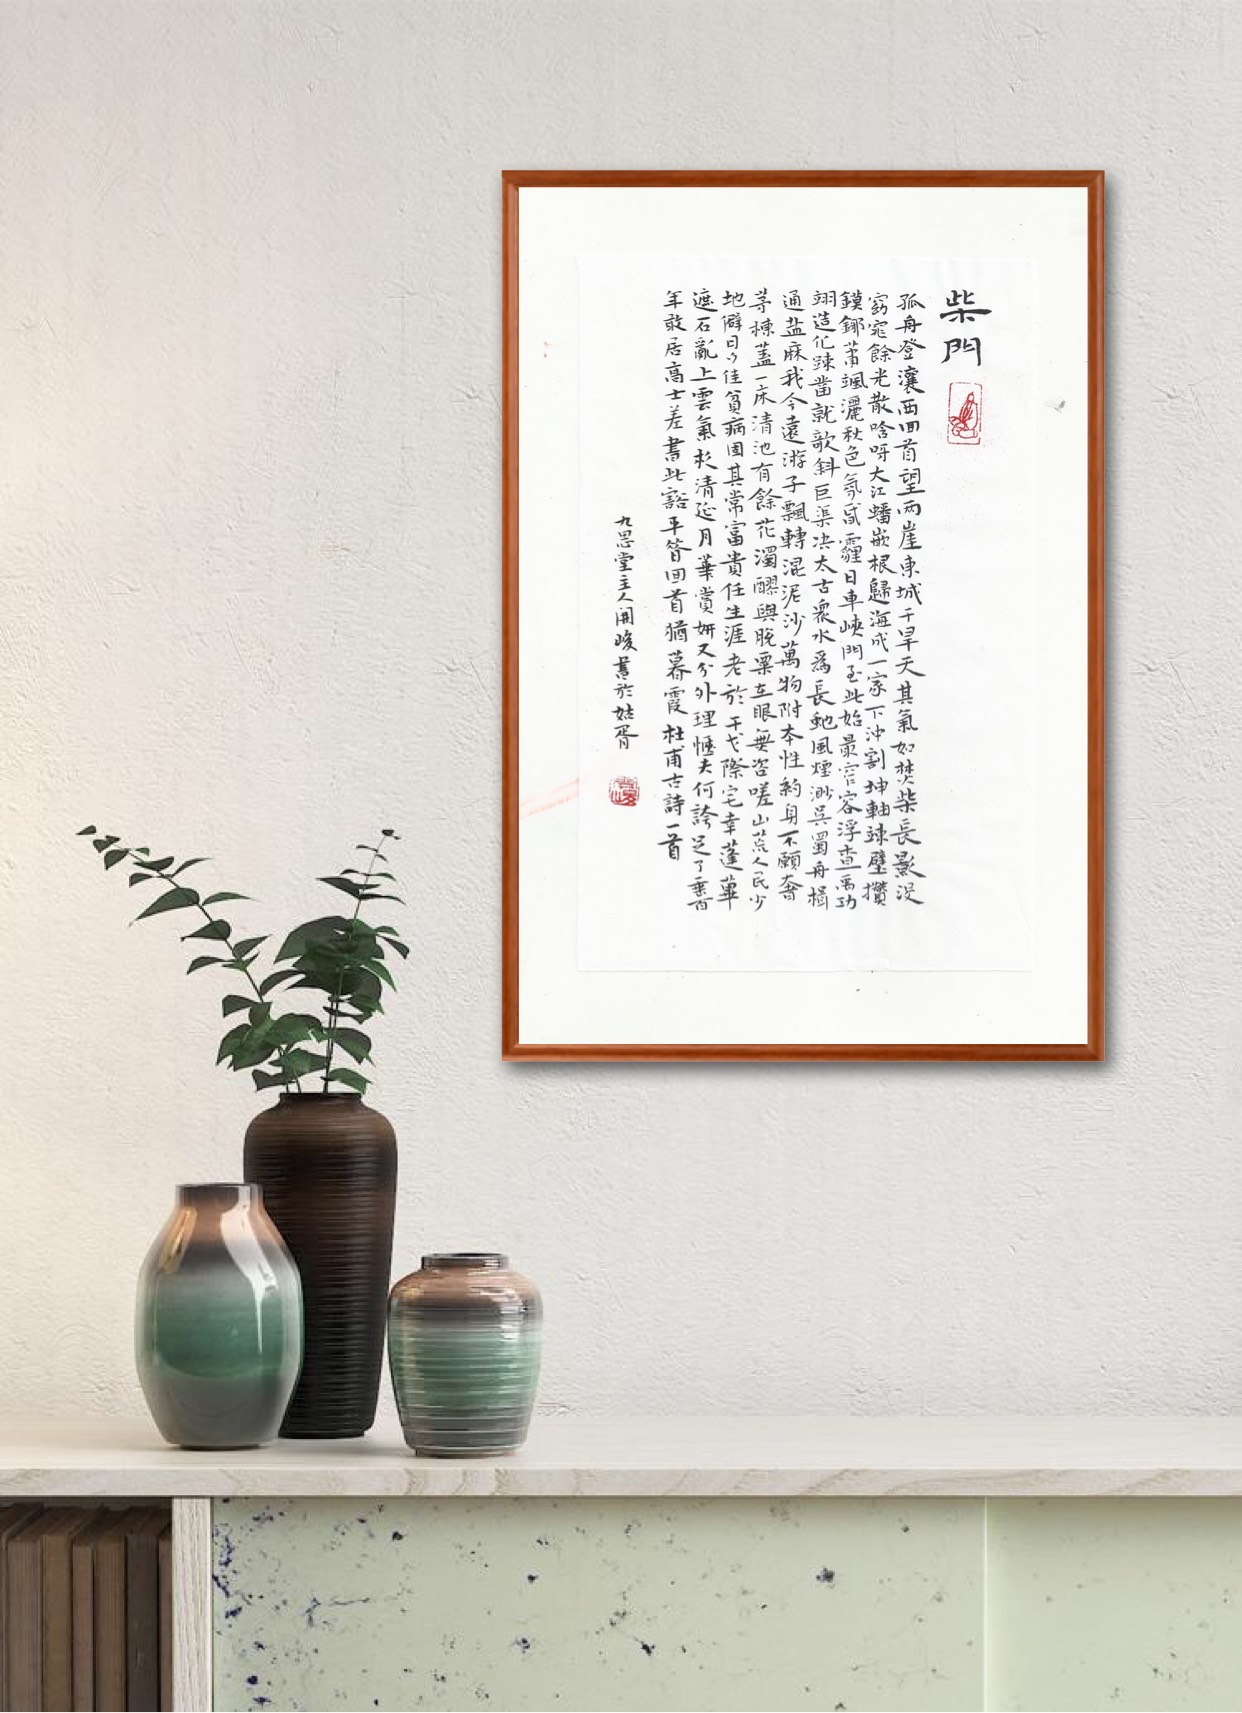 柴門
孤舟登瀼西回首望兩崖東城干旱天其氣如焚柴長影沒
窈窕餘光散唅呀大江蟠嵌根歸海成一家下沖割坤軸竦壁攢
鏌鋣蕭颯灑秋色氛昏霾日車峽門至此始最窄容浮查禹功
翊造化疎鑿就欹斜巨渠决太古衆水爲長虵風煙渺吳蜀舟楫
通盐麻我今遠游子飄轉混泥沙萬物附本性約身不願奢
茅棟蓋一床清池有餘花濁醪與脫粟在眼無咨嗟山荒人民少
地僻日夕佳貧病固其常富貴任生涯老於干戈際宅幸蓬蓽
遮石亂上雲氣杉清延月華賞妍又分外理愜夫何誇足了垂百
年敢居高士差書此豁平昔回首猶暮霞 杜甫古詩一首
九思堂主人開峻書於姑胥